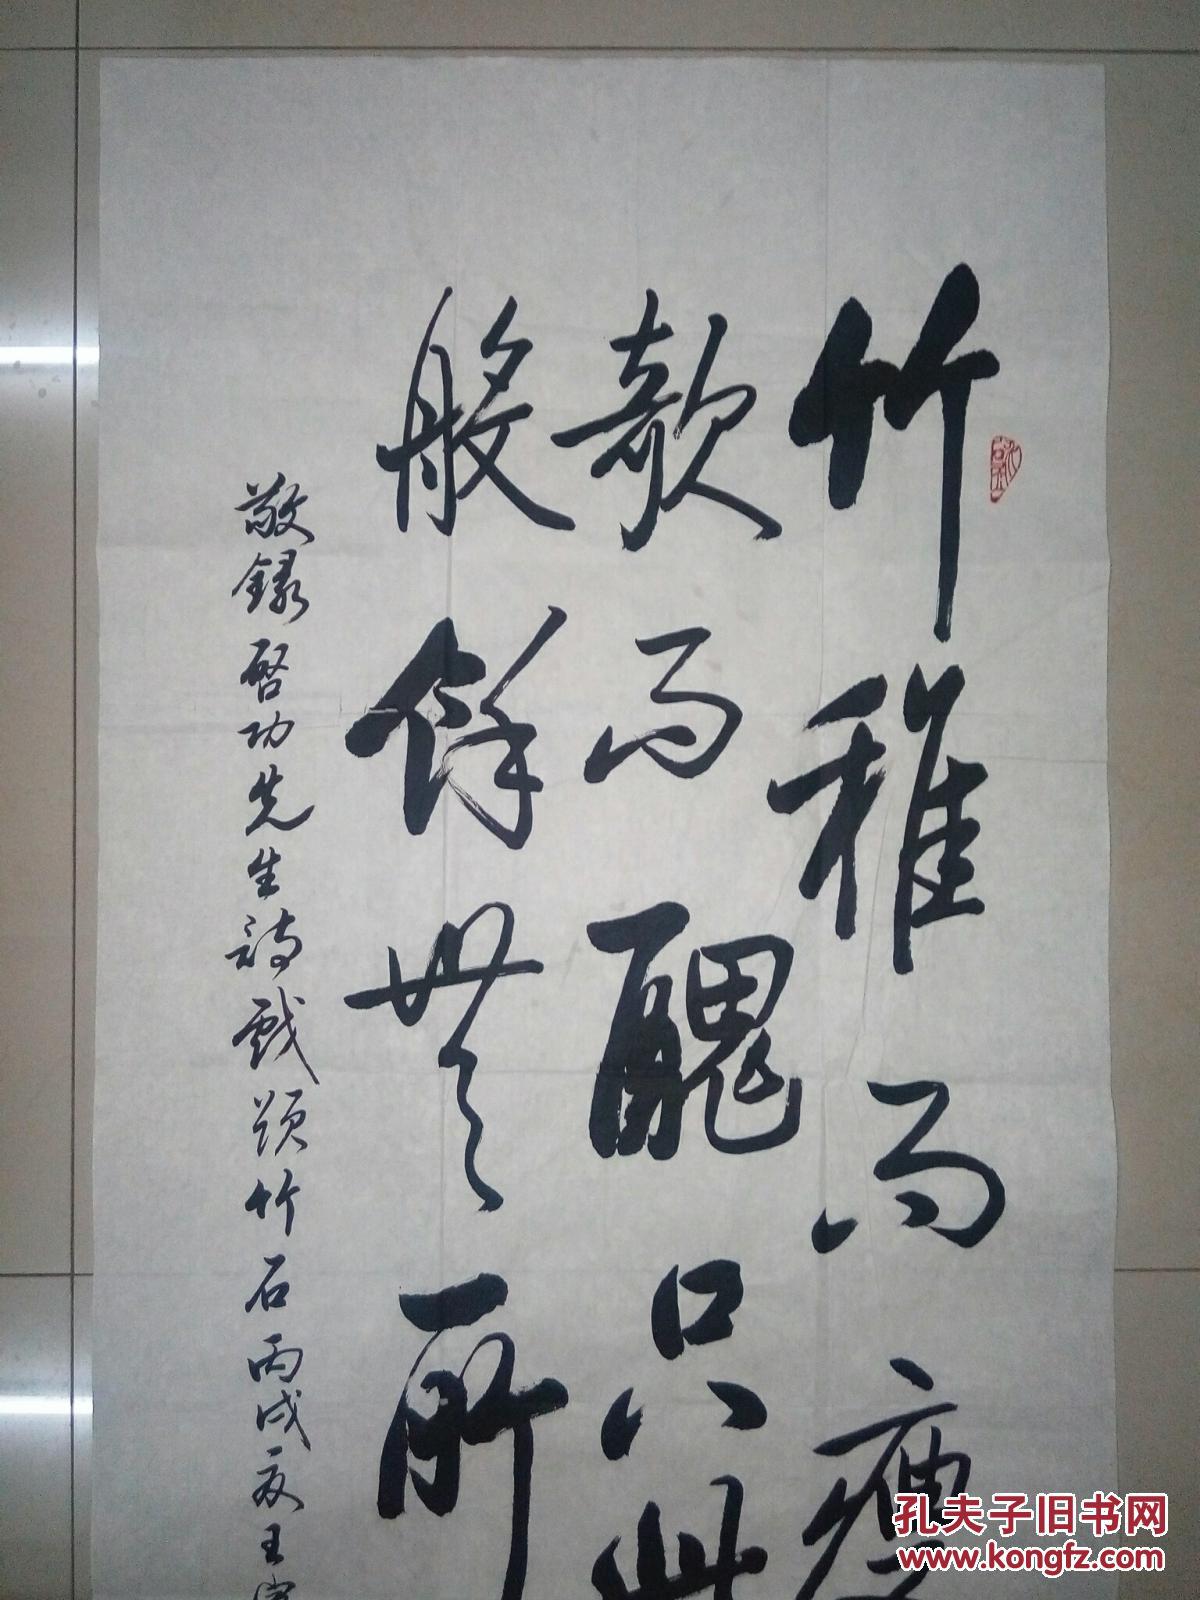 竹稚而瘦
欹而醜只此
般餘無所
敬録啓功先生詩戲題竹石丙戌夏王
孔夫子旧书网
www.kongfz.com